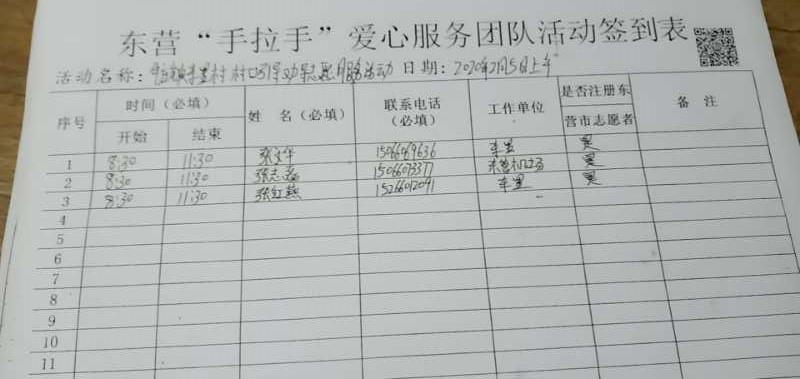 东营“手拉手”爱心服务团队活动签到表
活动名称：村村口引导劝返志愿服务活动 日期：2020年2月5日上午
序号 时间（必填） 姓 名（必填） 联系电话（必填） 工作单位 是否注册东营市志愿者 备 注
开始 结束
1 8:30 11:30 张文华 15066069636 是
2 8:30 11:30 张志 15066073377 东营机场 是
3 8:30 11:30 张红燕 15266012091 是
4
5
6
7
8
9
10
11